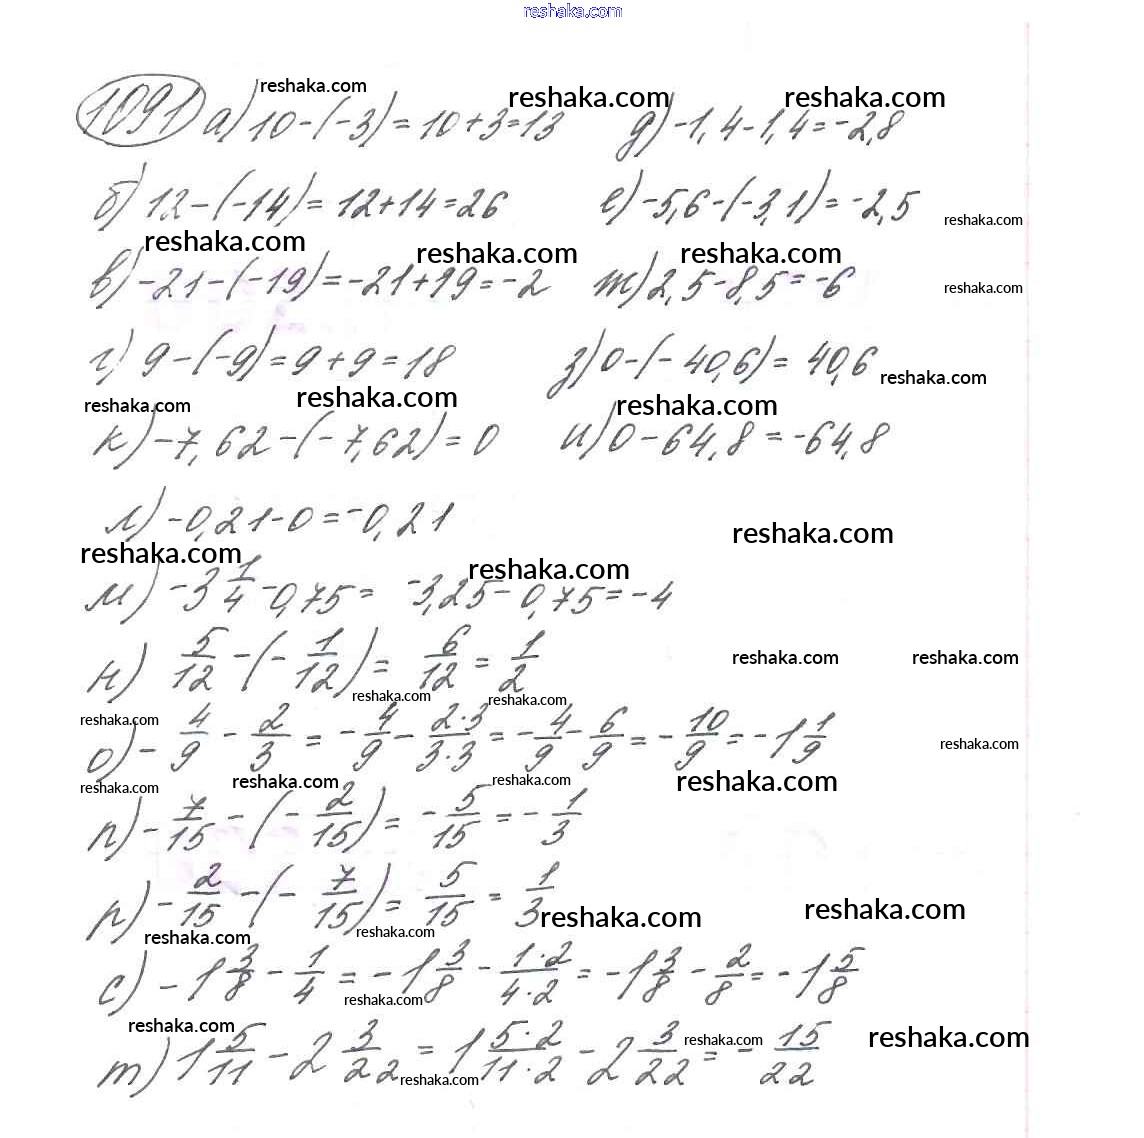 reshaka.com
1091 а) 10-(-3)=10+3=13 д) -1,4-1,4=-2,8
reshaka.com reshaka.com reshaka.com
б) 12-(-14)=12+14=26 е) -5,6-(-3,1)=-2,5
reshaka.com
reshaka.com reshaka.com reshaka.com
в) -21-(-19)=-21+19=-2 ж) 2,5-8,5=-6
reshaka.com
г) 9-(-9)=9+9=18 з) 0-(-40,6)= 40,6
reshaka.com
reshaka.com reshaka.com reshaka.com
к) -7,62-(-7,62)=0 и) 0-64,8=-64,8
л) -0,21-0=-0,21
reshaka.com
reshaka.com reshaka.com
м) -3 1/4 -0,75= -3,25-0,75=-4
н) 5/12 - (- 1/12) = 6/12 = 1/2
reshaka.com reshaka.com
reshaka.com reshaka.com
reshaka.com
о) - 4/9 - 2/3 = - 4/9 - 2·3/3·3 = - 4/9 - 6/9 = - 10/9 = -1 1/9
reshaka.com
reshaka.com reshaka.com reshaka.com reshaka.com
п) - 7/15 - (- 2/15) = - 5/15 = - 1/3
р) - 2/15 - (- 7/15) = 5/15 = 1/3
reshaka.com reshaka.com
reshaka.com reshaka.com
с) -1 3/8 - 1/4 = -1 3/8 - 1·2/4·2 = -1 3/8 - 2/8 = -1 5/8
reshaka.com
reshaka.com reshaka.com reshaka.com
т) 1 5/11 - 2 3/22 = 1 5·2/11·2 - 2 3/22 = - 15/22
reshaka.com